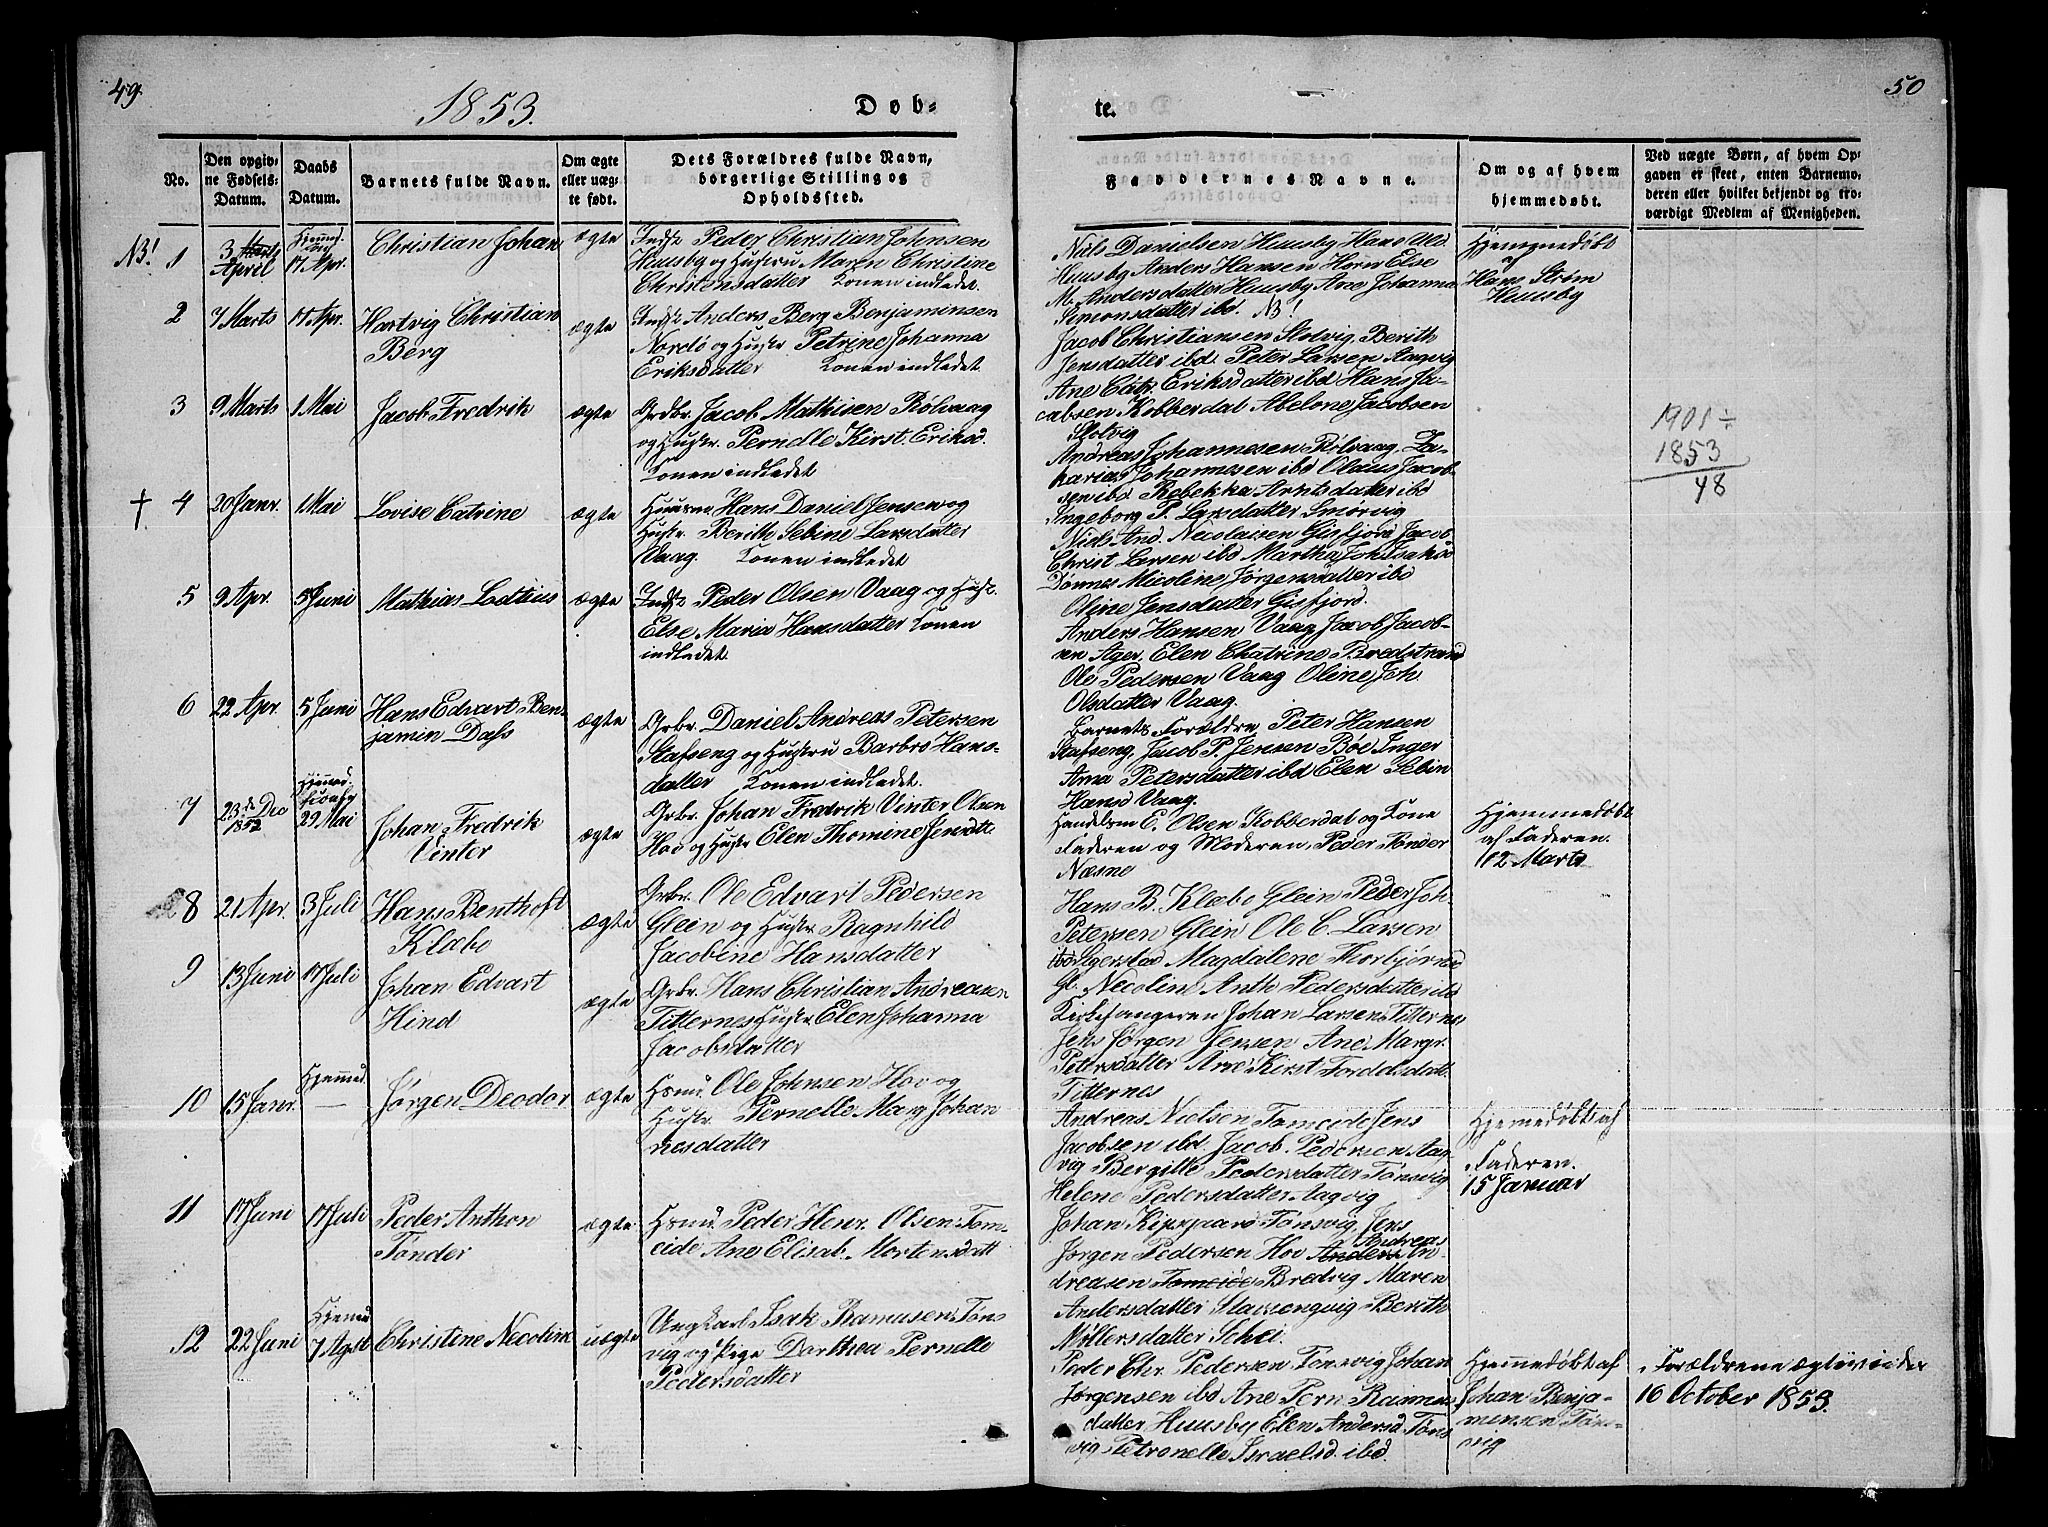 49.
1853.
Døb-
te.
50
No.
Den opgiv-
ne Fødsels-
Datum.
Daabs
Datum.
Barnets fulde Navn.
Om ægte
eller uæg-
te født.
Dets Forældres fulde Navn,
borgerlige Stilling og
Opholdssted.
Faddernes Navne.
Om og af hvem
hjemmedøbt.
Ved uægte Børn, af hvem Op-
gaven er skeet, enten Barnemo-
deren eller hvilket bekjendt og tro-
værdigt Medlem af Menigheden.
NB! 1
3 Marts
April
17 Apr.
Christian Johan
ægte
Indst Peder Christian Johnsen
Huusby og Hustru Maren Christine
Christensdatter Konen indledet.
Niels Danielsen Huusby Hans Ols.
Huusby Anders Hansen Horn Else
M. Andersdatter Huusby Ane Johanna
Simonsdatter ibd. NB!
Hjemmedøbt
af
Hans Strøm
Huusby
2
7 Marts
17 Apr.
Hartvig Christian
Berg
ægte
Indst Anders Berg Benjaminsen
Nordø og Hustr Petrine Johanna
Eriksdatter Konen indledet
Jacob Christiansen Slotvig Berith
Jensdatter ibd. Peter Larsen Aagvig
Ane Catr. Eriksdatter ibd Hans Ja-
cobsen Kobberdal Abelone Jacobsen
Slotvig
3
9 Marts
1 Mai
Jacob Fredrik
ægte
Grdbr. Jacob Mathisen Rølvaag
og Hustr. Pernelle Kirst. Eriksd.
Konen indledet
Andreas Johannesen Rølvaag, Za-
karias Johannesen ibd Olaus Jacob-
sen ibd Rebekka Arntsdatter ibd
Ingeborg P. Larsdatter Smørvig
1901 ÷
1853
48
† 4
20 Janr.
1 Mai
Lovise Catrine
ægte
Huusm Hans Daniel Jensen og
Hustr. Berith Sebine Larsdatter
Vaag. Konen indledet
Niels And. Necolaisen Gisfjord Jacob
Christ Larsen ibd Martha Joh Isaksd
Dønnes Nicoline Jørgensdatter ibd
Oline Jensdatter Gisfjord.
5
9 Apr.
5 Juni
Mathias Lodtius
ægte
Indst Peder Olsen Vaag og Hust.
Else Maria Hansdatter Konen
indledet
Anders Hansen Vaag Jacob Jacob-
sen Ager. Elen Chatrine Bredstrand
Ole Pedersen Vaag Oline Joh
Olsdatter Vaag.
6
22 Apr.
5 Juni
Hans Edvart Ben-
jamin Dass
ægte
Grbr. Daniel Andreas Petersen
Stafseng og Hustru Barbro Hans-
datter Konen indledet.
Barnets Forældre, Peter Hansen
Stafseng, Jacob P. Jensen Bøe Inger
Ama Petersdatter ibd Elen Sebin
Hansd Vaag.
7
23de Dec
1852
29 Mai
Johan Fredrik
Vinter
ægte
Grbr. Johan Fredrik Vinter Olsen
Hov og Hustr Elen Thomine Jensdtr
Handelsm E. Olsen Kobberdal og Kone
Faderen og Moderen, Peder Tønder
Næsne
Hjemmedøbt
af Faderen.
12 Marts
8
21 Apr.
3 Juli
Hans Benthoft
Klæbo
ægte
Grbr. Ole Edvart Pedersen
Glein og Hustr. Ragnhild
Jacobine Hansdatter
Hans B. Klæbo Glein Peder Joh-
Petersen Glein Ole C. Larsen
Igerstad Magdalene Thorbjørnsd
Gl. Necolin Anth Pedersdatter ibd
9
13 Juni
17 Juli
Johan Edvart
Hind
ægte
Grbr. Hans Christian Andreasen
Titternes Hustr Elen Johanna
Jacobsdatter
Kirkesangeren Johan Larsen Titternes
Jens Jørgen Jensen Ane Margr.
Petersdatter Ane Kirst Tordelsdatt.
Titternes
10
15 Janr.
Hjemmed.
Jørgen Deodor
ægte
Hsmd. Ole Johnsen Hov og
Hustr. Pernelle Marg Johan
nesdatter
Andreas Nielsen Tomeide Jens
Jacobsen ibd. Jacob. Pedersen Aag-
vig Bergitte Pedersdatter Tønsvig
Helene Pedersdatter Aagvig
Hjemedøbt af
Faderen.
15 Januar
11
17 Juni
17 Juli
Peder Anthon
Tønder
ægte
Hsmd. Peder Henr. Olsen Tom-
eide Ane Elisab. Mortensdatt
Johan Tønsvig, Jens
Jørgen Pedersen Hov Anders Andreas An-
dreasen Tomeide Bredvig Maren
Andersdatter Slaxsengvig Berith
Møllersdatter Schei.
12
22 Juni
Hjemmd
7 Agst
Christine Necoline
uægte
Ungkarl Isak Ramusen Tøns
vig og Pige Dorthea Pernelle
Pedersdatter
Peder Chr. Pedersen Tønsvig Johan
Jørgensen ibd Ane Pern Rasmus
datter Huusby Elen Andersd Tøns
vig Petronelle Israelsd. ibd.
Hjemmedøbt af
Johan Benja-
minsen Tøns-
vig
Forældrene ægteviede
16 October 1853.